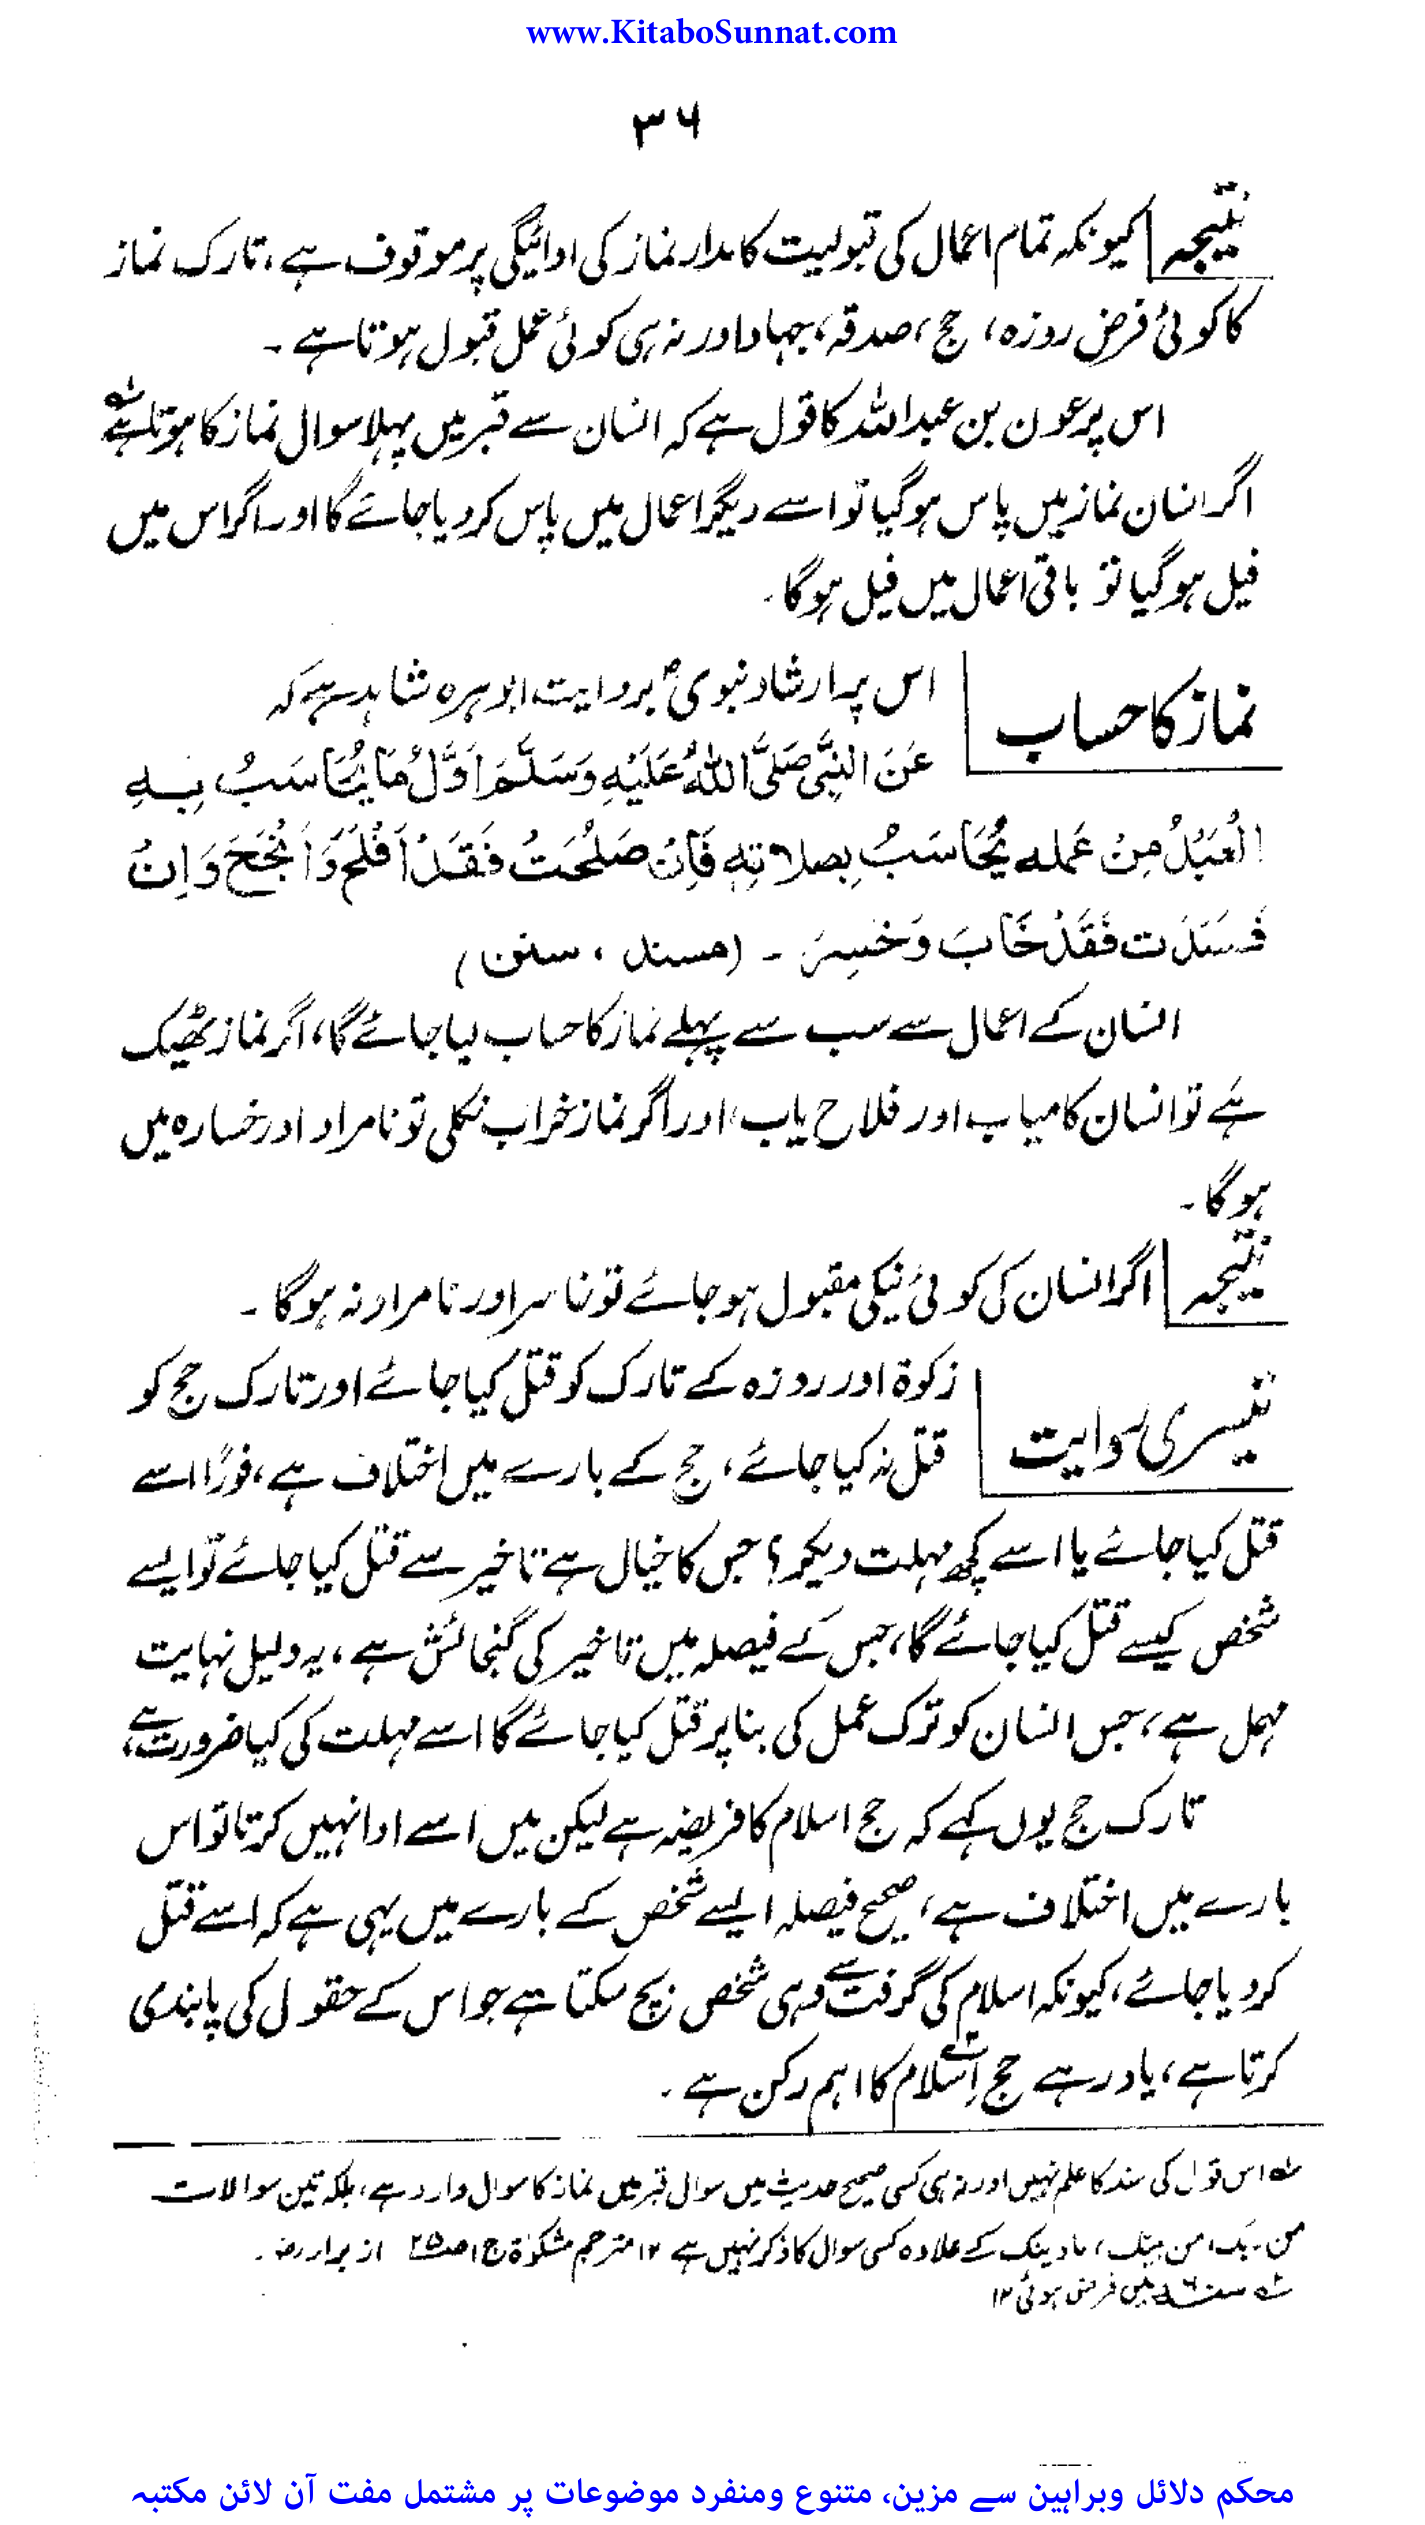 www.KitaboSunnat.com
۳۶
نتیجہ کیونکہ تمام اعمال کی قبولیت کا مدار نماز کی ادائیگی پر موقوف ہے، تارک نماز
کا کوئی فرض روزہ، حج، صدقہ، جہاد اور نہ ہی کوئی عمل قبول ہوتا ہے ۔
اس پر عون بن عبداللہ کا قول ہے کہ انسان سے قبر میں پہلا سوال نماز کا ہوتا ہے لہ
اگر انسان نماز میں پاس ہوگیا تو اسے دیگر اعمال میں پاس کر دیا جائے گا اور اگر اس میں
فیل ہوگیا تو باقی اعمال میں فیل ہوگا ۔
نماز کا حساب
اس پر ارشاد نبوی ؐ بروایت ابو ہرہ شاہد ہے کہ
عَنَ النَّبِّی صَلَّی اللّٰهُ عَلَیْهِ وَسَلَّمَ اَوَّلُ مَا یُحَاسَبُ بِهِ
الْعَبْدُ مِنْ عَمله یُحَاسَبُ بِصلاتِهِ فَاِنْ صَلُحَتْ فَقَدْ اَفْلَحَ وَاَنْجَحَ وَاِنْ
فَسَدَت فَقَدْ خَابَ وَخَسِرَ ۔ (مسند ، سنن)
انسان کے اعمال سے سب سے پہلے نماز کا حساب لیا جائے گا، اگر نماز ٹھیک
ہے تو انسان کامیاب اور فلاح یاب، اور اگر نماز خراب نکلی تو نامراد اور خسارہ میں
ہوگا ۔
نتیجہ اگر انسان کی کوئی نیکی مقبول ہو جائے تو خاسر اور نامراد نہ ہوگا ۔
تیسری روایت
زکوۃ اور روزہ کے تارک کو قتل کیا جائے اور تارک حج کو
قتل نہ کیا جائے، حج کے بارے میں اختلاف ہے، فورًا اسے
قتل کیا جائے یا اسے کچھ مہلت دیکر؟ جس کا خیال ہے تاخیر سے قتل کیا جائے تو ایسے
شخص کیسے قتل کیا جائے گا، جس کے فیصلہ میں تاخیر کی گنجائش ہے، یہ دلیل نہایت
مہمل ہے، جس انسان کو ترک عمل کی بنا پر قتل کیا جائے گا اسے مہلت کی کیا ضرورت ہے،
تارک حج یوں کہے کہ حج اسلام کا فریضہ ہے لیکن میں اسے ادا نہیں کرتا تو اس
بارے میں اختلاف ہے، صحیح فیصلہ ایسے شخص کے بارے میں یہی ہے کہ اسے قتل
کر دیا جائے، کیونکہ اسلام کی گرفت سے وہی شخص بچ سکتا ہے جو اس کے حقوق کی پابندی
کرتا ہے، یاد رہے حج اسلام ۲ہ کا اہم رکن ہے ۔
لہ اس قول کی سند کا علم نہیں اور نہ ہی کسی صحیح حدیث میں سوال قبر میں نماز کا سوال وارد ہے، بلکہ تین سوالات
من ربک، من نبیک، مادینک کے علاوہ کسی سوال کا ذکر نہیں ہے ۱۲ مترجم مشکوٰۃ ج۱ ص۲۵ از برار رضہ ۔
۲ہ سنہ ۶ ھ میں فرض ہوئی ۱۲
محکم دلائل وبراہین سے مزین، متنوع ومنفرد موضوعات پر مشتمل مفت آن لائن مکتبہ